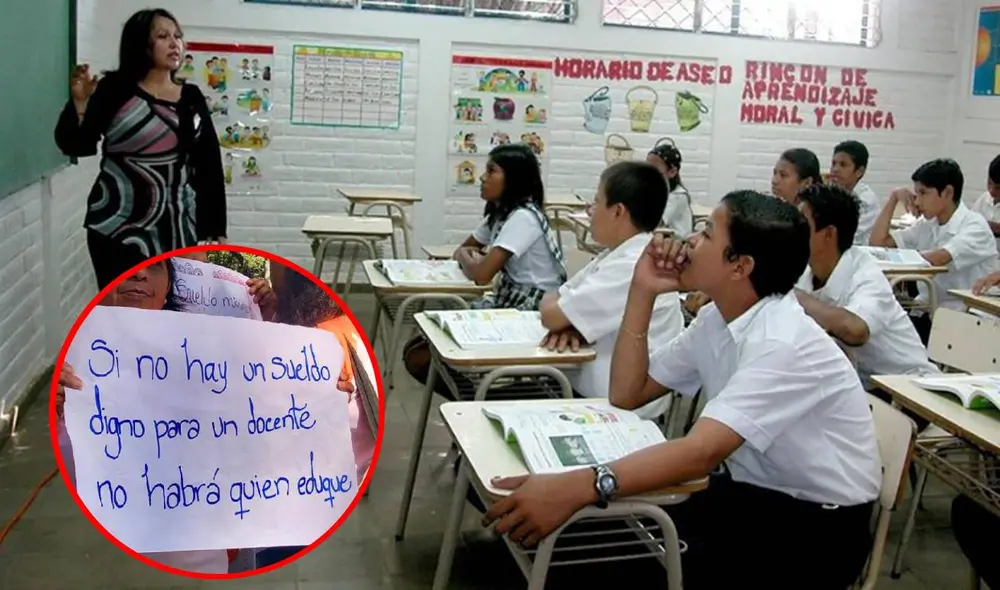 HORARIO DE ASEO
RINCON DE
APRENDIZAJE
MORAL Y CIVICA
Sueldo
Si no hay un sueldo
digno para un docente
no habrá quien eduque